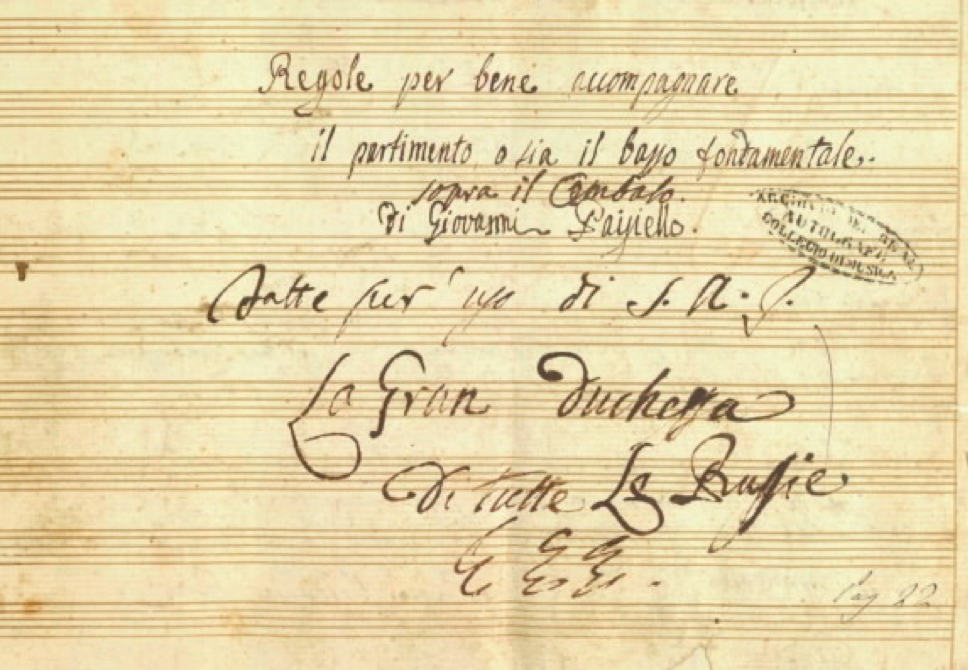 Regole per bene accompagnare
il partimento o sia il basso fondamentale.
sopra il Cembalo.
di Giovanni Paisiello.
ARCHIVIO DEL REAL
AUTOGRAFI
COLLEGIO DI MUSICA
Fatte per uso di S. A. I.
La Gran Duchessa
di tutte Le Russie
Pag 22